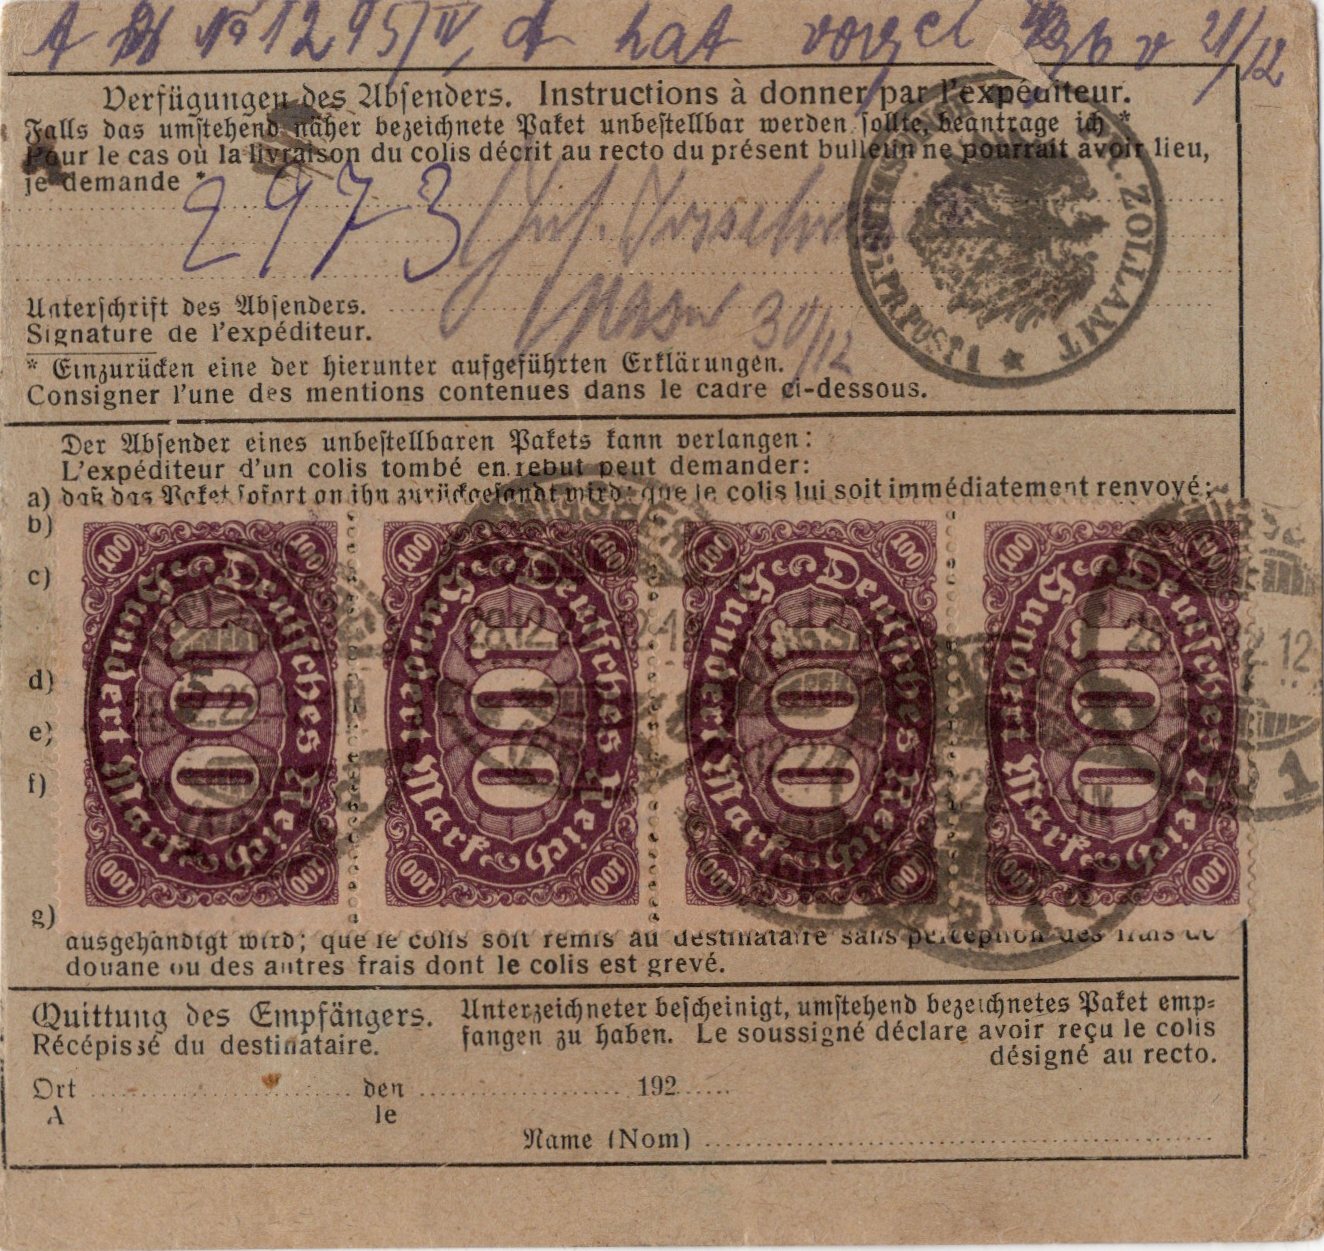 21/12
Verfügungen des Absenders. Instructions à donner par l'expéditeur.
Falls das umstehend näher bezeichnete Paket unbestellbar werden sollte, beantrage ich *
Pour le cas où la livraison du colis décrit au recto du présent bulletin ne pourrait avoir lieu,
je demande *
2973
30/12
ZOLLAMT
Unterschrift des Absenders.
Signature de l'expéditeur.
* Einzurücken eine der hierunter aufgeführten Erklärungen.
Consigner l'une des mentions contenues dans le cadre ci-dessous.
Der Absender eines unbestellbaren Pakets kann verlangen:
L'expéditeur d'un colis tombé en rebut peut demander:
a) daß das Paket sofort an ihn zurückgesandt wird; que le colis lui soit immédiatement renvoyé;
b)
c)
d)
e)
f)
g)
100 100 100 100
Deutsches Reich
100
Hundert Mark
100 100 100 100
Deutsches Reich
100
Hundert Mark
100 100 100 100
Deutsches Reich
100
Hundert Mark
100 100 100
Deutsches Reich
100
Hundert Mark
ausgehändigt wird; que le colis soit remis au destinataire sans perception des frais de
douane ou des autres frais dont le colis est grevé.
Quittung des Empfängers.
Récépissé du destinataire.
Unterzeichneter bescheinigt, umstehend bezeichnetes Paket emp-
fangen zu haben. Le soussigné déclare avoir reçu le colis
désigné au recto.
Ort den 192
A le
Name (Nom)